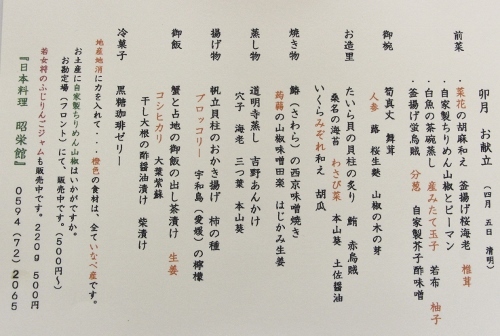 卯月 お献立 (四月 五日 清明)
前菜 ・菜花の胡麻和え 釜揚げ桜海老 椎茸
・自家製ちりめん山椒とピーマン
・白魚の茶碗蒸し 産みたて玉子 若布 柚子
・釜揚げ蛍烏賊 分葱 自家製芥子酢味噌
御椀 筍真丈 舞茸
人参 蕗 桜生麩 山椒の木の芽
お造里 たいら貝の貝柱の炙り 鮪 赤烏賊
桑名の海苔 わさび菜 本山葵 土佐醤油
いくらみぞれ和え 胡瓜
焼き物 鰆(さわら)の西京味噌焼き
蒟蒻の山椒味噌田楽 はじかみ生姜
蒸し物 道明寺蒸し 吉野あんかけ
穴子 海老 三つ葉 本山葵
揚げ物 帆立貝柱のおかき揚げ 柿の種
ブロッコリー 宇和島(愛媛)の檸檬
御飯 蟹と占地の御飯の出し茶漬け 生姜
コシヒカリ 大葉紫蘇
干し大根の酢醤油漬け 柴漬け
冷菓子 黒糖珈琲ゼリー
地産地消に力を入れて・・・橙色の食材は、全ていなべ産です。
お土産に自家製ちりめん山椒はいかがですか。
お勘定場(フロント)にて、販売中です。(500円~)
若女将のふじりんごジャムも販売中です。220g 500円
『日本料理 昭栄館』 0594(72)2065